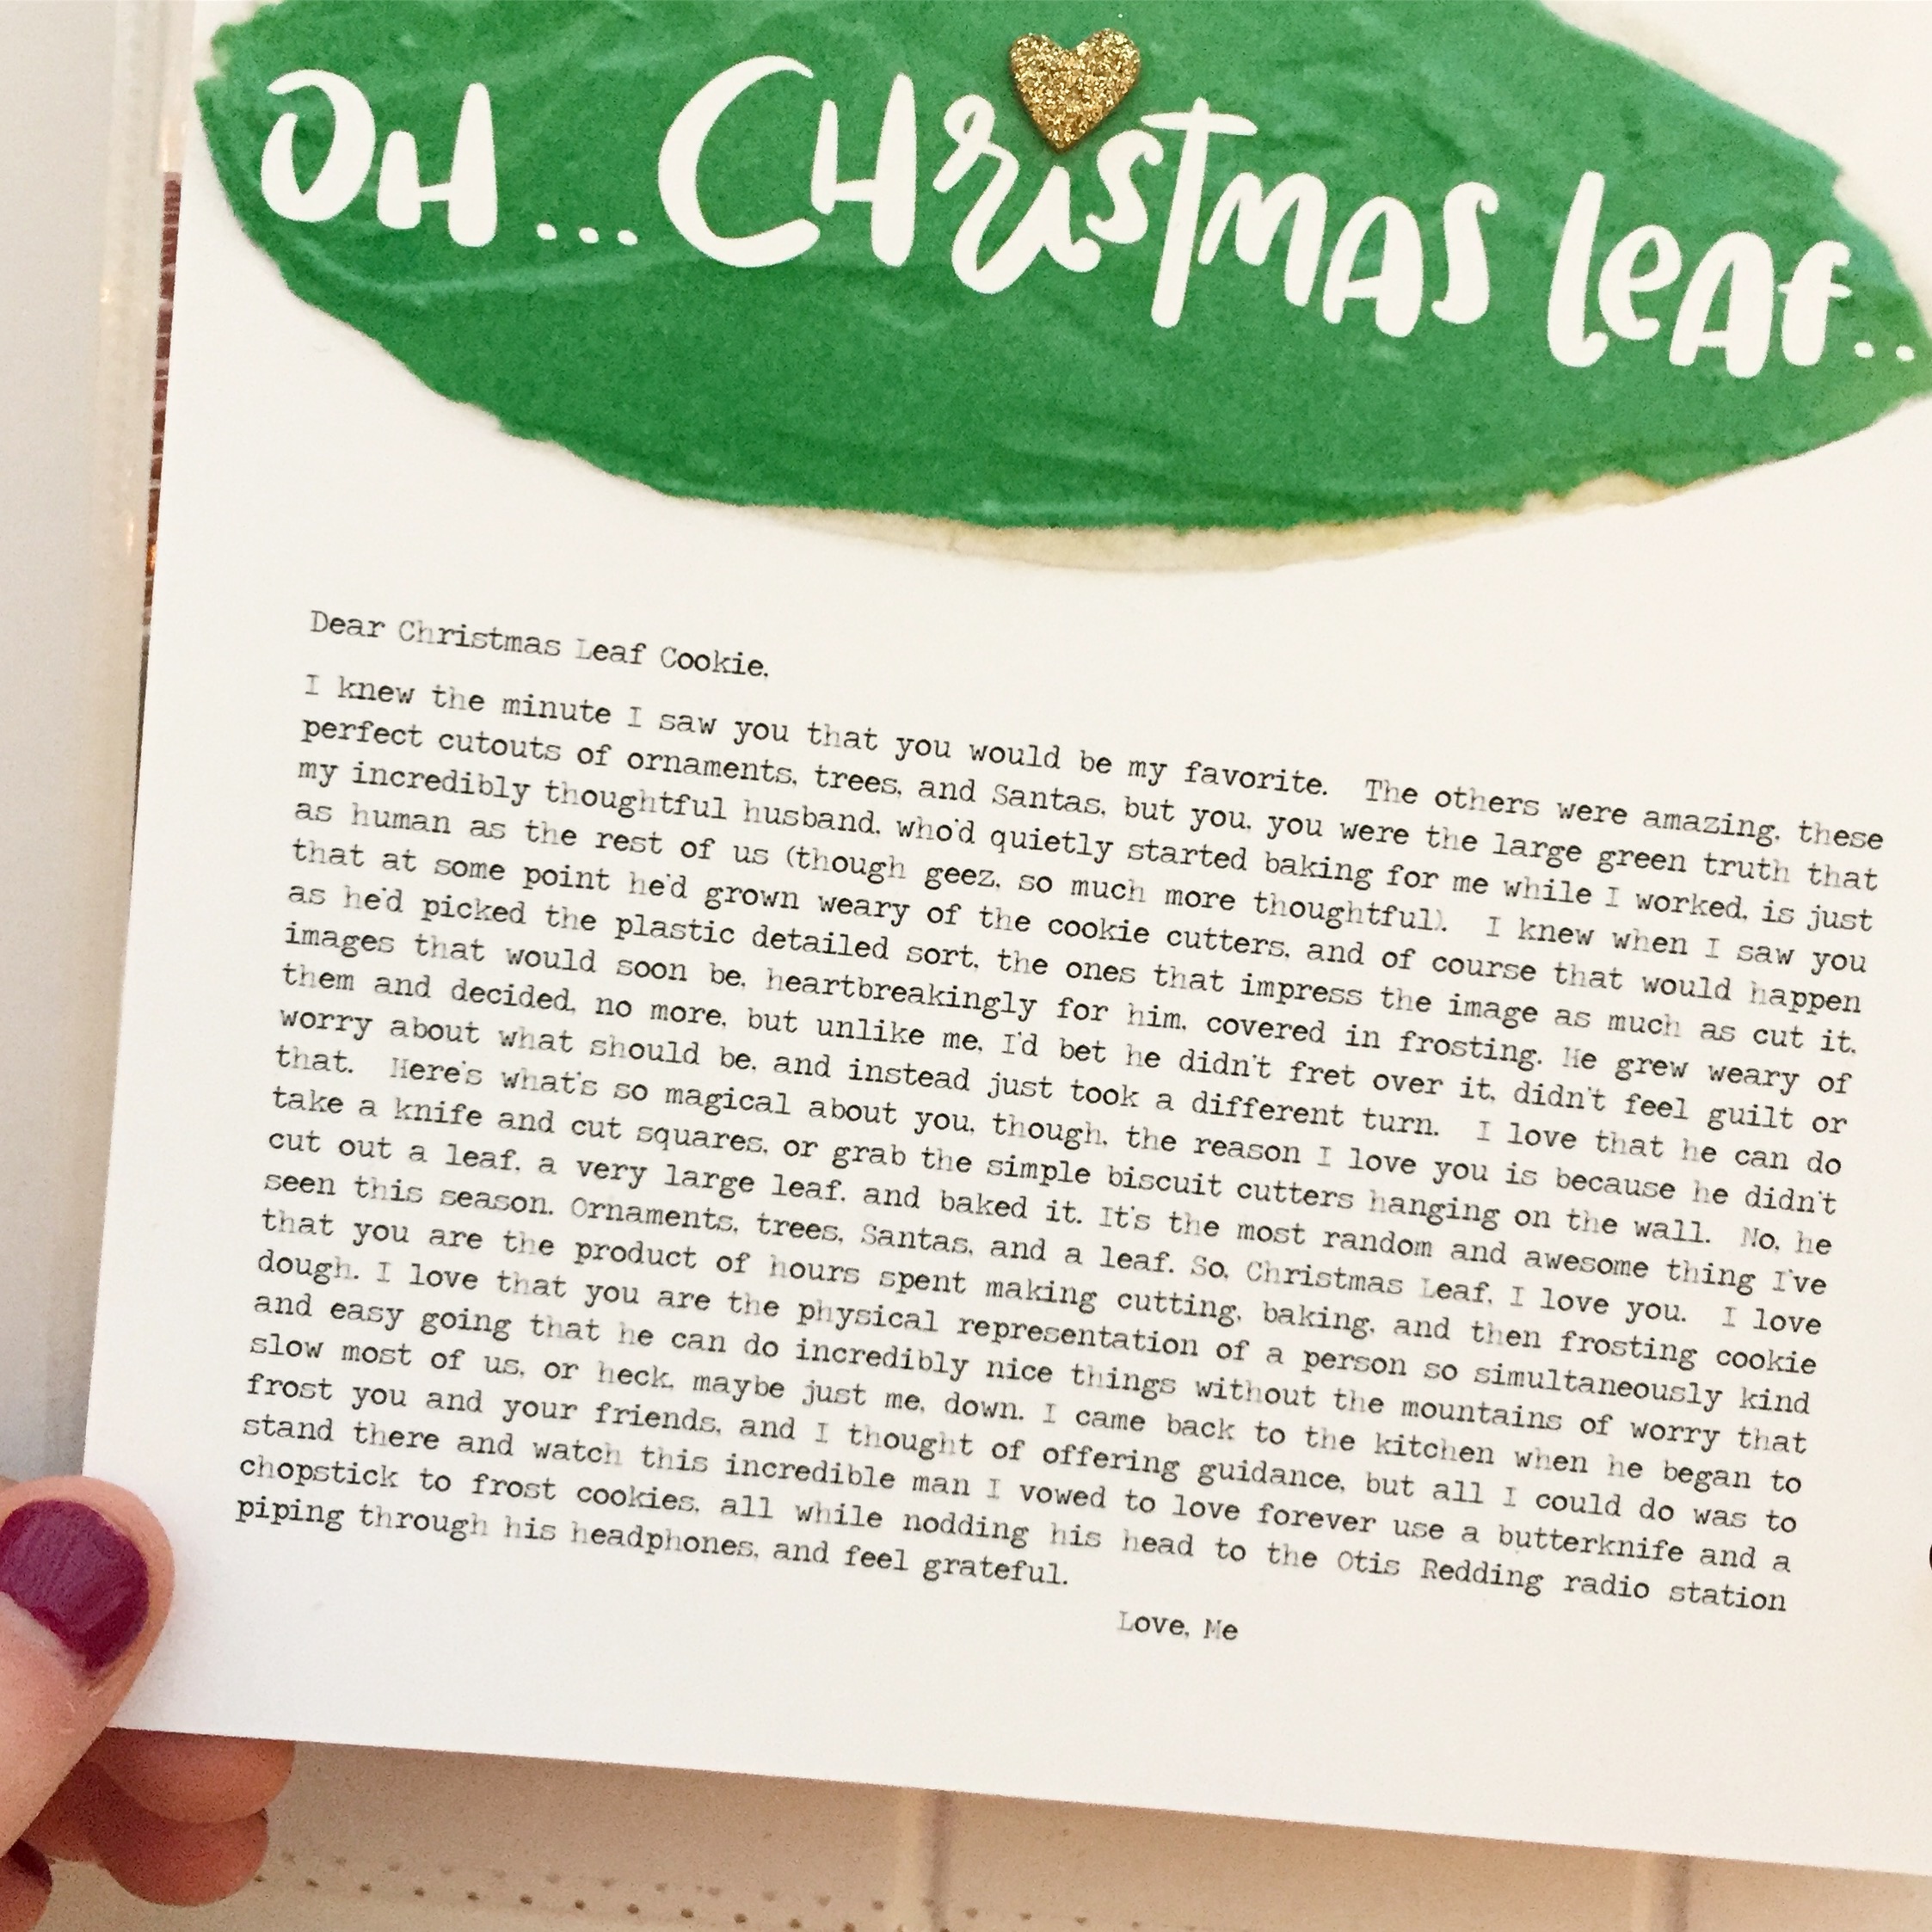 OH... CHristmas leaf..
Dear Christmas Leaf Cookie,
I knew the minute I saw you that you would be my favorite.  The others were amazing, these
perfect cutouts of ornaments, trees, and Santas, but you, you were the large green truth that
my incredibly thoughtful husband, who'd quietly started baking for me while I worked, is just
as human as the rest of us (though geez, so much more thoughtful).  I knew when I saw you
that at some point he'd grown weary of the cookie cutters, and of course that would happen
as he'd picked the plastic detailed sort, the ones that impress the image as much as cut it,
images that would soon be, heartbreakingly for him, covered in frosting. He grew weary of
them and decided, no more, but unlike me, I'd bet he didn't fret over it, didn't feel guilt or
worry about what should be, and instead just took a different turn.  I love that he can do
that.  Here's what's so magical about you, though, the reason I love you is because he didn't
take a knife and cut squares, or grab the simple biscuit cutters hanging on the wall.  No, he
cut out a leaf, a very large leaf, and baked it. It's the most random and awesome thing I've
seen this season. Ornaments, trees, Santas, and a leaf. So, Christmas Leaf, I love you.  I love
that you are the product of hours spent making cutting, baking, and then frosting cookie
dough. I love that you are the physical representation of a person so simultaneously kind
and easy going that he can do incredibly nice things without the mountains of worry that
slow most of us, or heck, maybe just me, down. I came back to the kitchen when he began to
frost you and your friends, and I thought of offering guidance, but all I could do was to
stand there and watch this incredible man I vowed to love forever use a butterknife and a
chopstick to frost cookies, all while nodding his head to the Otis Redding radio station
piping through his headphones, and feel grateful.
Love, Me